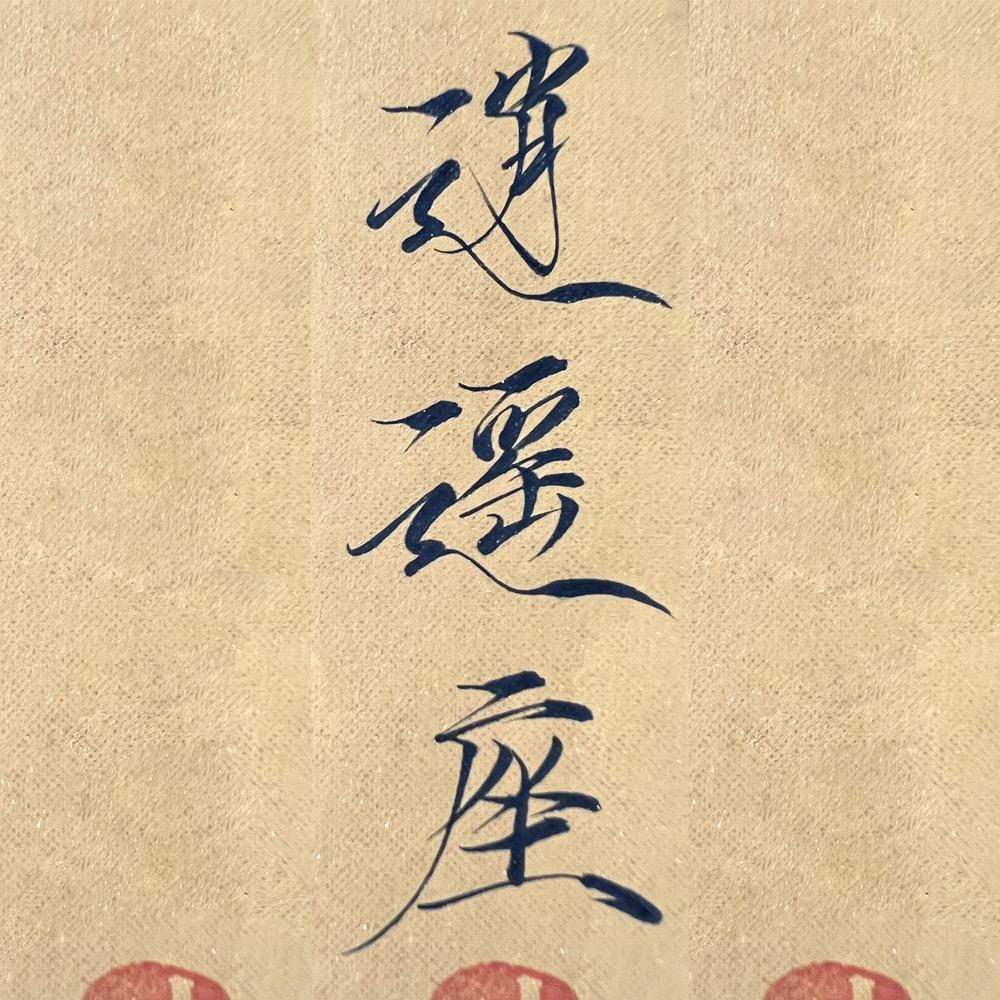 逍遥座